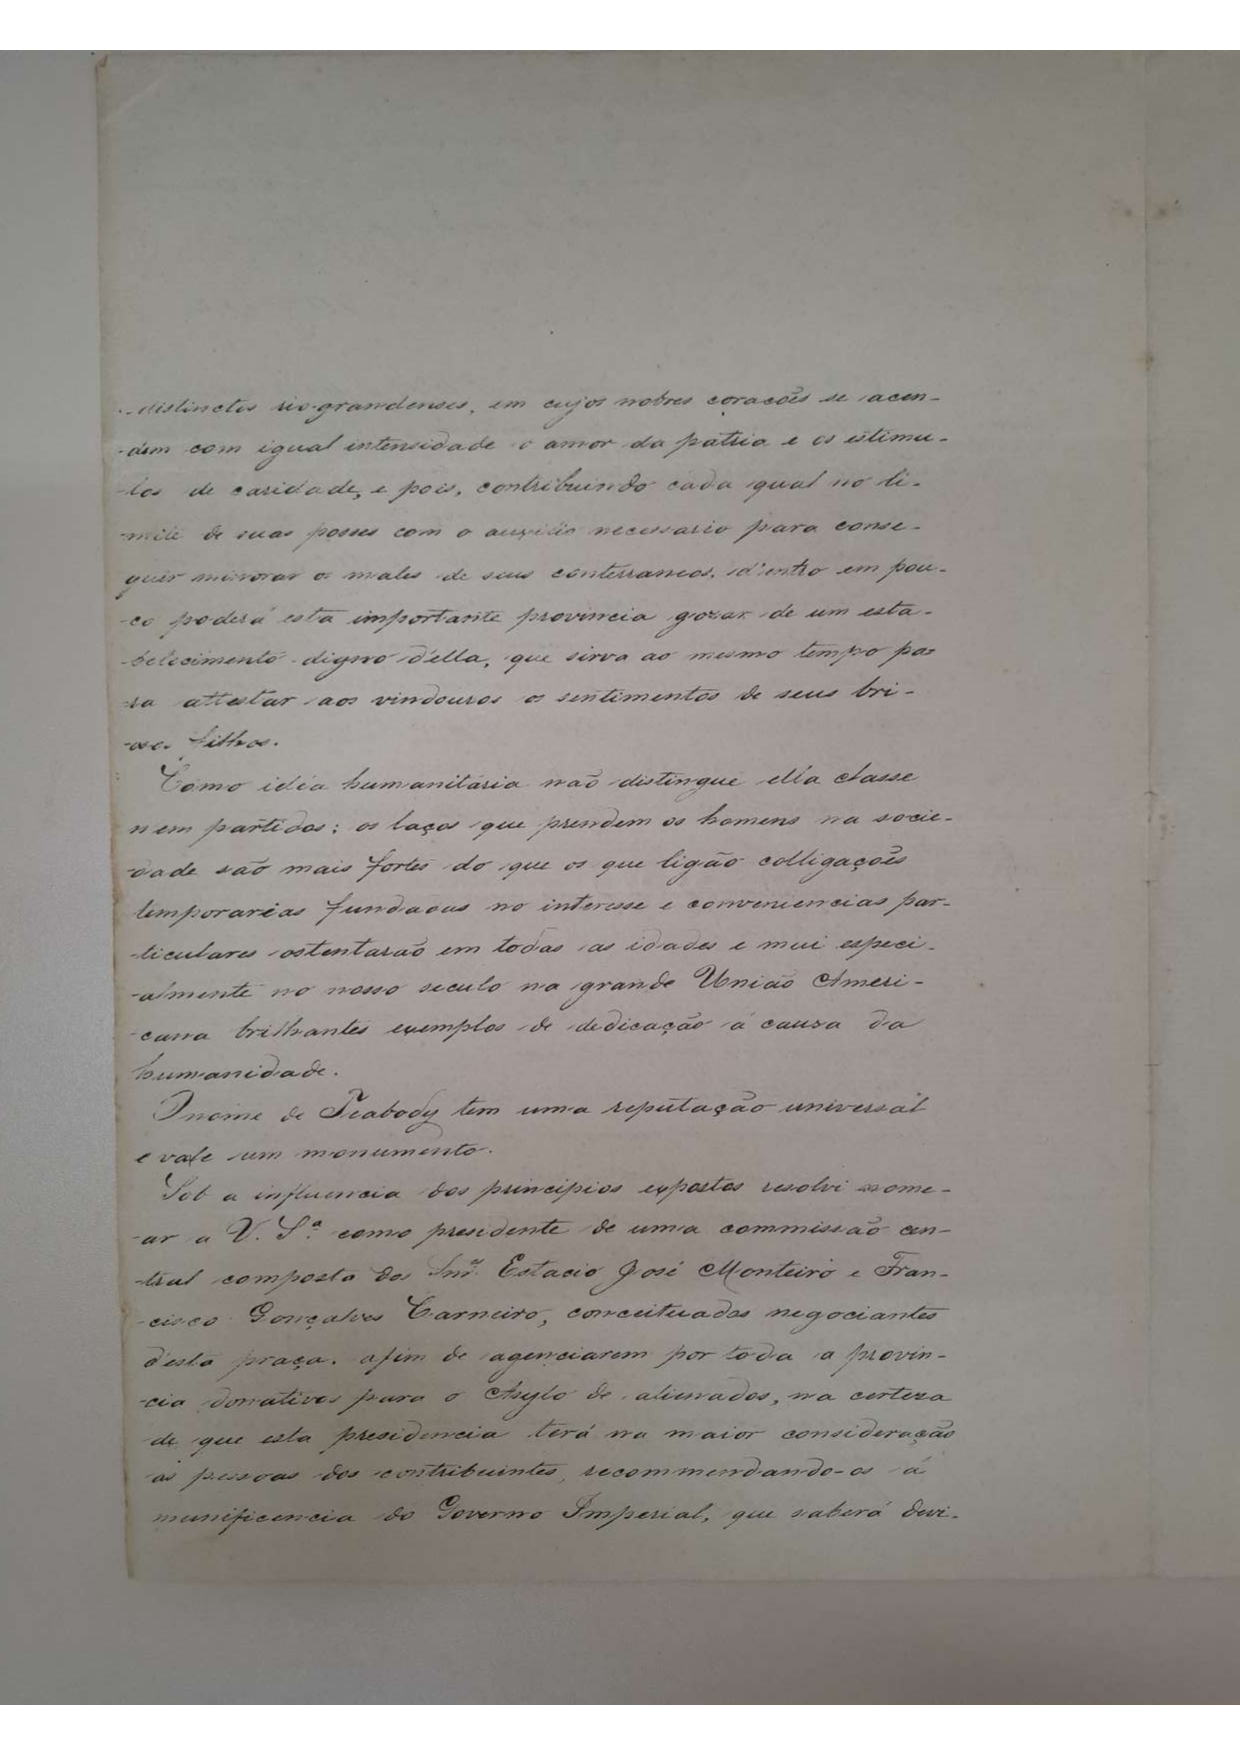 distinctos rio-grandenses, em cujos nobres corações se acen-
-dem com igual intensidade o amor da patria e os estimu-
-los de caridade, e pois, contribuindo cada qual no li-
-mite de suas posses com o auxilio necessario para conse-
guir minorar os males de seus conterraneos, d'entro em pou-
-co poderá esta importante provincia gozar de um esta-
-belecimento digno d'ella, que sirva ao mesmo tempo pa-
ra attestar aos vindouros os sentimentos de seus bri-
-osos filhos.
Como idéa humanitaria não distingue ella classe
nem partidos: os laços que prendem os homens na socie-
-dade são mais fortes do que os que ligão colligações
temporarias fundadas no interesse e conveniencias par-
-ticulares ostentarão em todas as idades e mui especi-
-almente no nosso seculo na grande União Ameri-
-cana brilhantes exemplos de dedicação á causa da
humanidade.
O nome de Peabody tem uma reputação universal
e vale um monumento.
Sob a influencia dos principios expostos resolvi nome-
-ar a V. Sª. como presidente de uma commissão cen-
-tral composta dos Snr.es Estacio José Monteiro e Fran-
-cisco Gonçalves Carneiro, conceituados negociantes
d'esta praça, afim de agenciarem por toda a provin-
-cia donativos para o Asylo de alienados, na certeza
de que esta presidencia terá na maior consideração
as pessoas dos contribuintes, recommendando-os á
munificencia do Governo Imperial, que saberá devi-